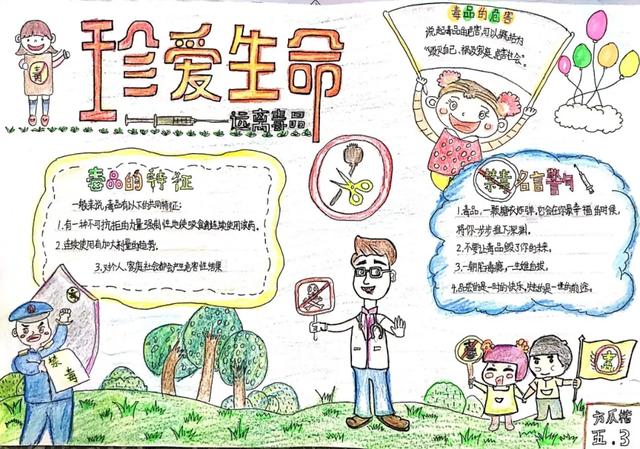 毒
珍爱生命
远离毒品
毒品的危害
说起毒品的危害,可以概括为
“毁灭自己,祸及家庭,危害社会”。
毒品的特征
一般来说,毒品有以下的共同特征:
1.有一种不可抗拒的力量强制性地使吸食者连续使用该药。
2.连续使用有加大剂量的趋势。
3.对个人、家庭社会都会产生危害性结果
禁毒名言警句
1.毒品,一颗定时炸弹,它会在你最幸福的时候,
将你一步步推下深渊。
2.不要让毒品毁了你的未来。
3.一朝沾毒瘾,一世难自拔。
4.品尝的是一时的快乐,毁灭的是一世的前途。
禁毒
禁
五.3